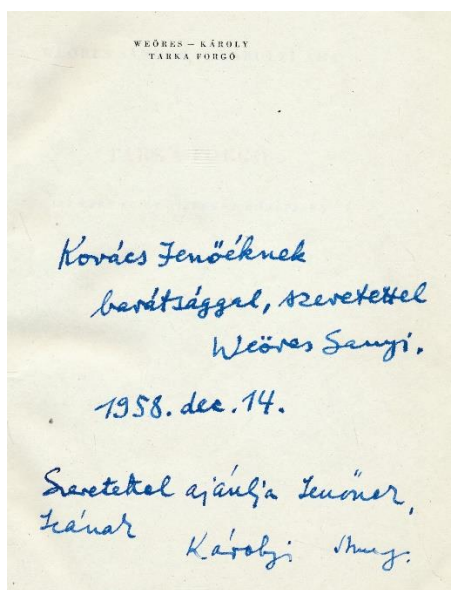 WEÖRES — KÁROLY
TARKA FORGÓ
Kovács Jenőéknek
barátsággal, szeretettel
Weöres Sanyi.
1958. dec. 14.
Szeretettel ajánlja Jenőnek,
Icának
Károlyi